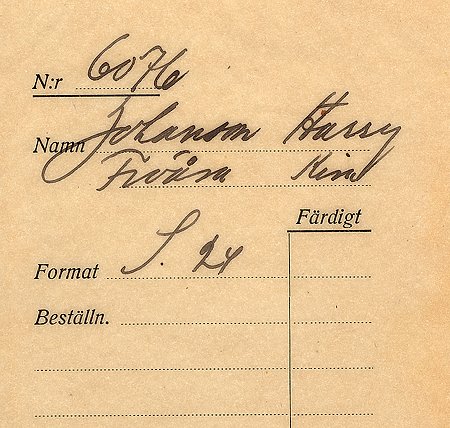 N:r 6076
Namn Johanson Harry
Kina
Färdigt
Format S. 24
Beställn.